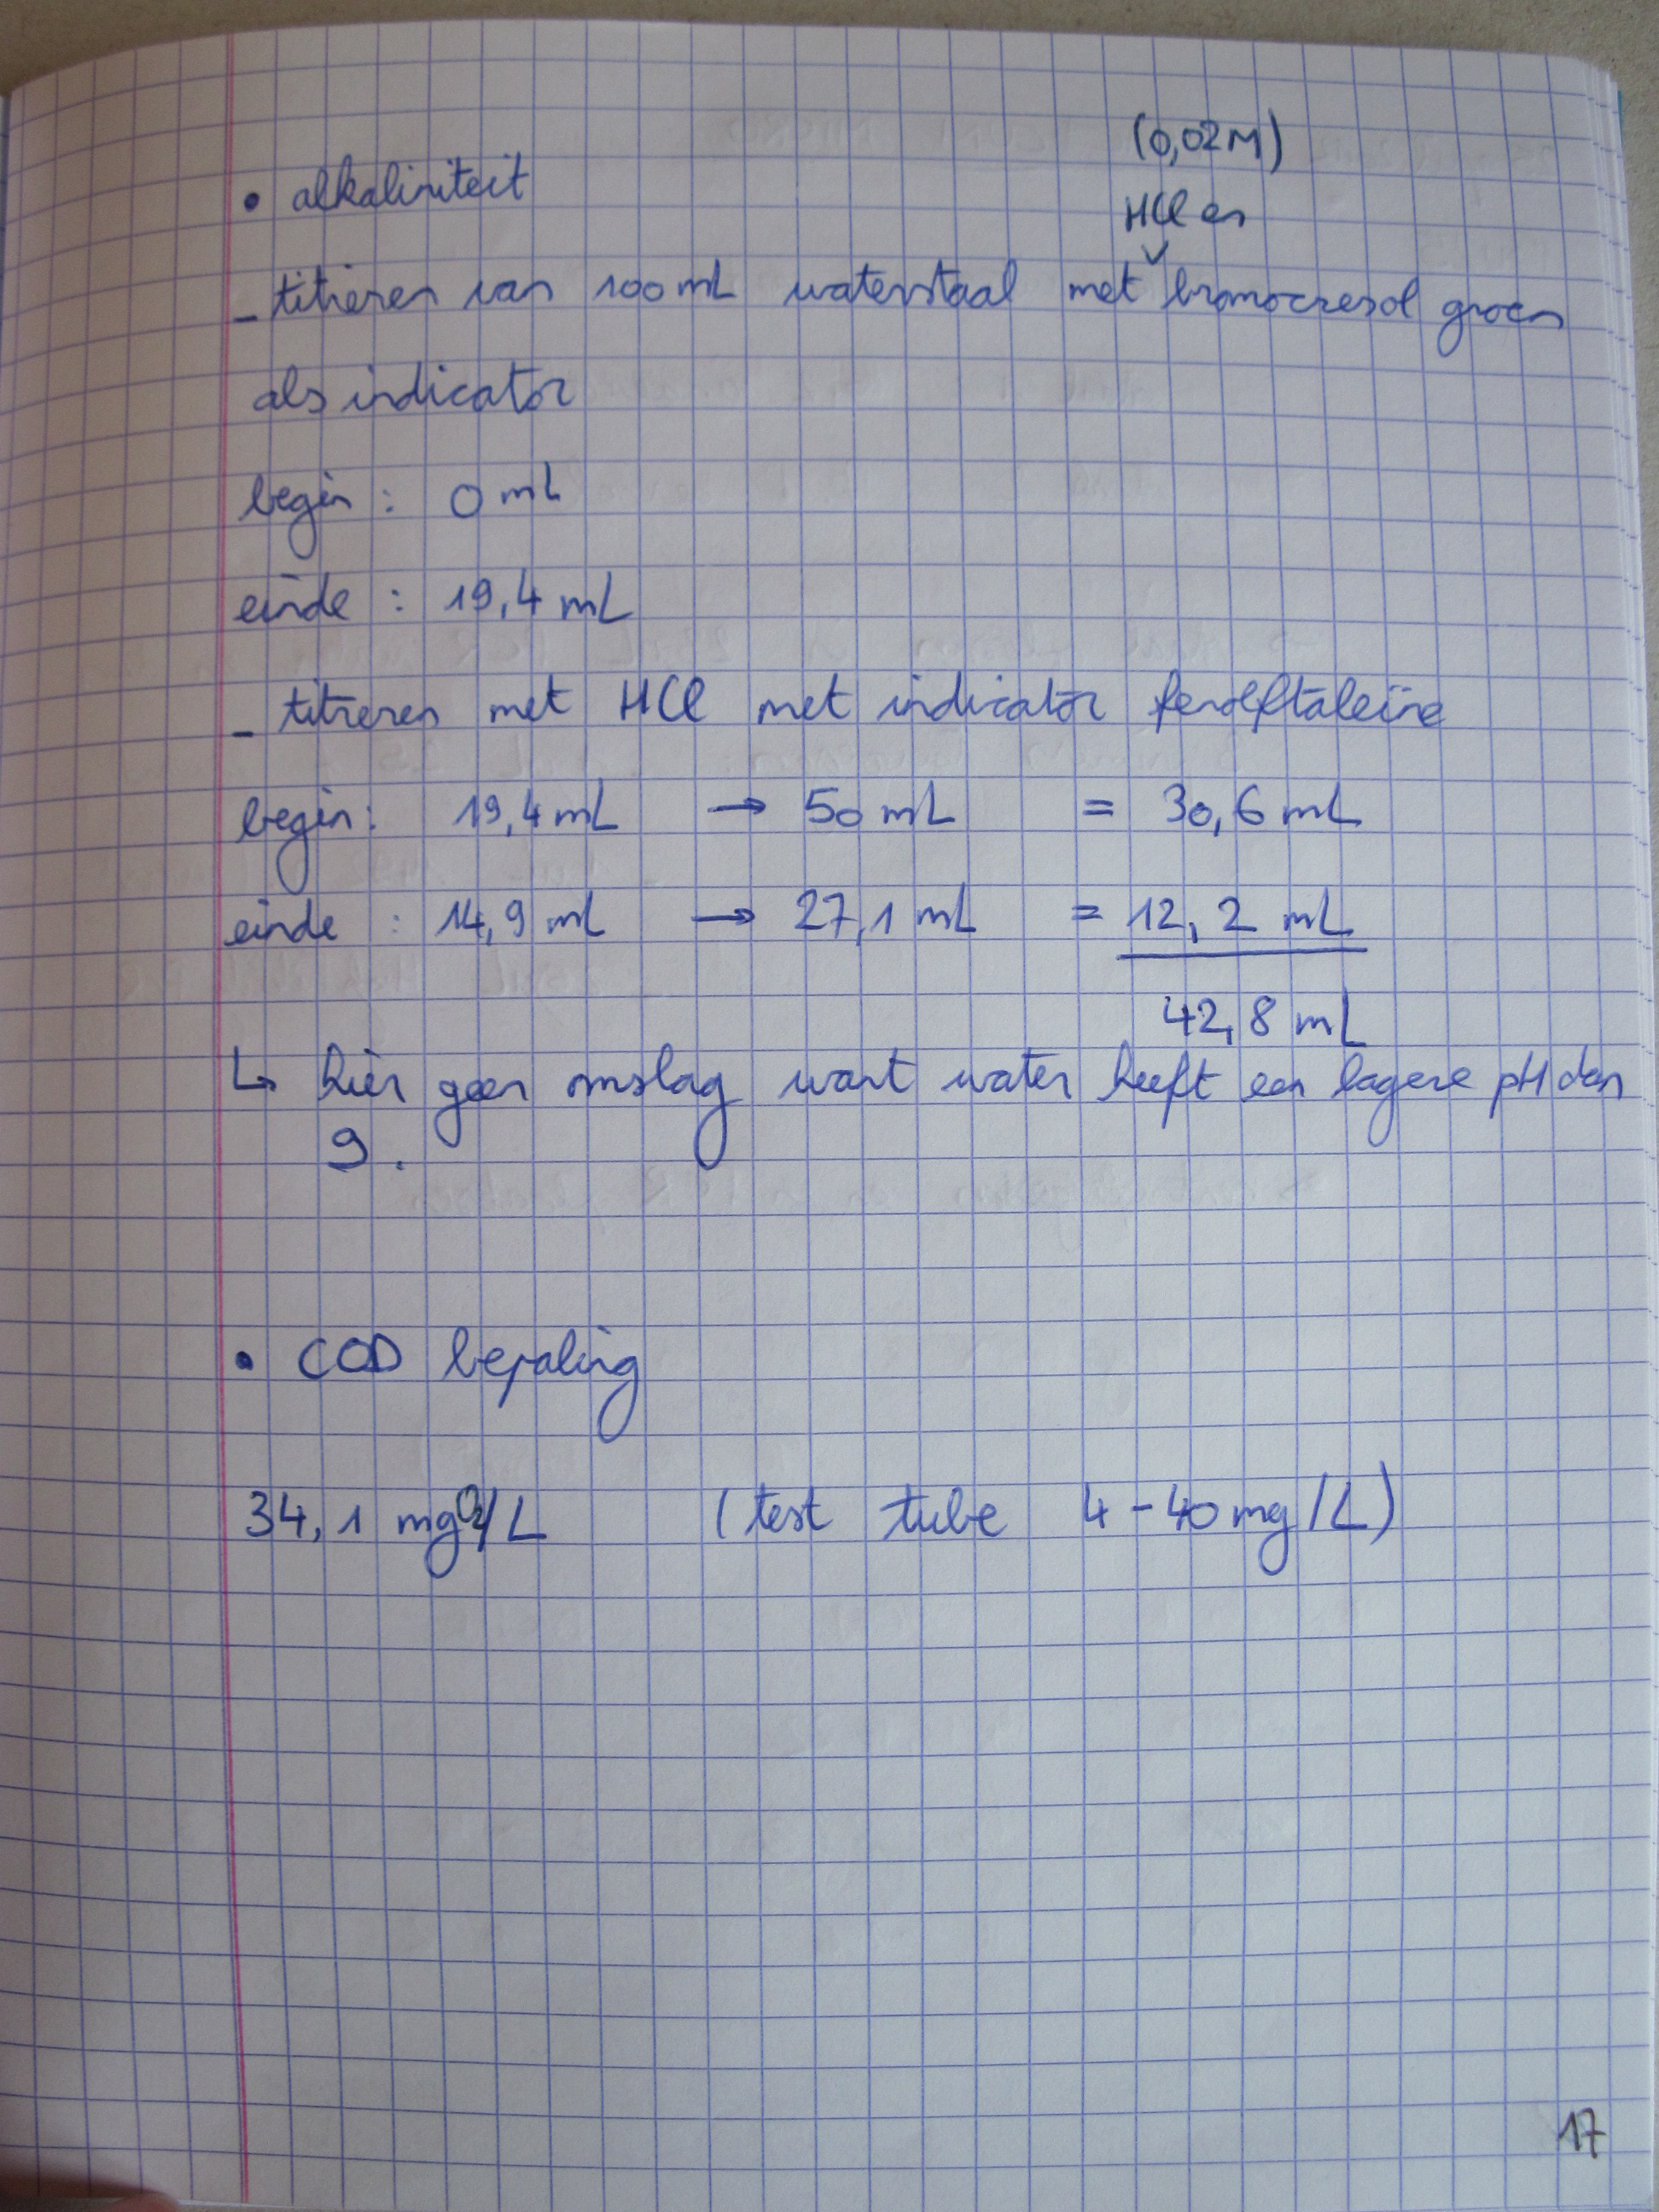 • alkaliniteit
(0,02M)
HCl en
- titreren van 100 mL waterstaal met ᵛ bromocresol groen
als indicator
begin : 0 mL
einde : 19,4 mL
- titreren met HCl met indicator fenolftaleïne
begin: 19,4 mL → 50 mL = 30,6 mL
einde : 14,9 mL → 27,1 mL = 12,2 mL
42,8 mL
↳ hier geen omslag want water heeft een lagere pH dan
9.
• COD bepaling
34,1 mgO₂/L (test tube 4-40 mg/L)
17